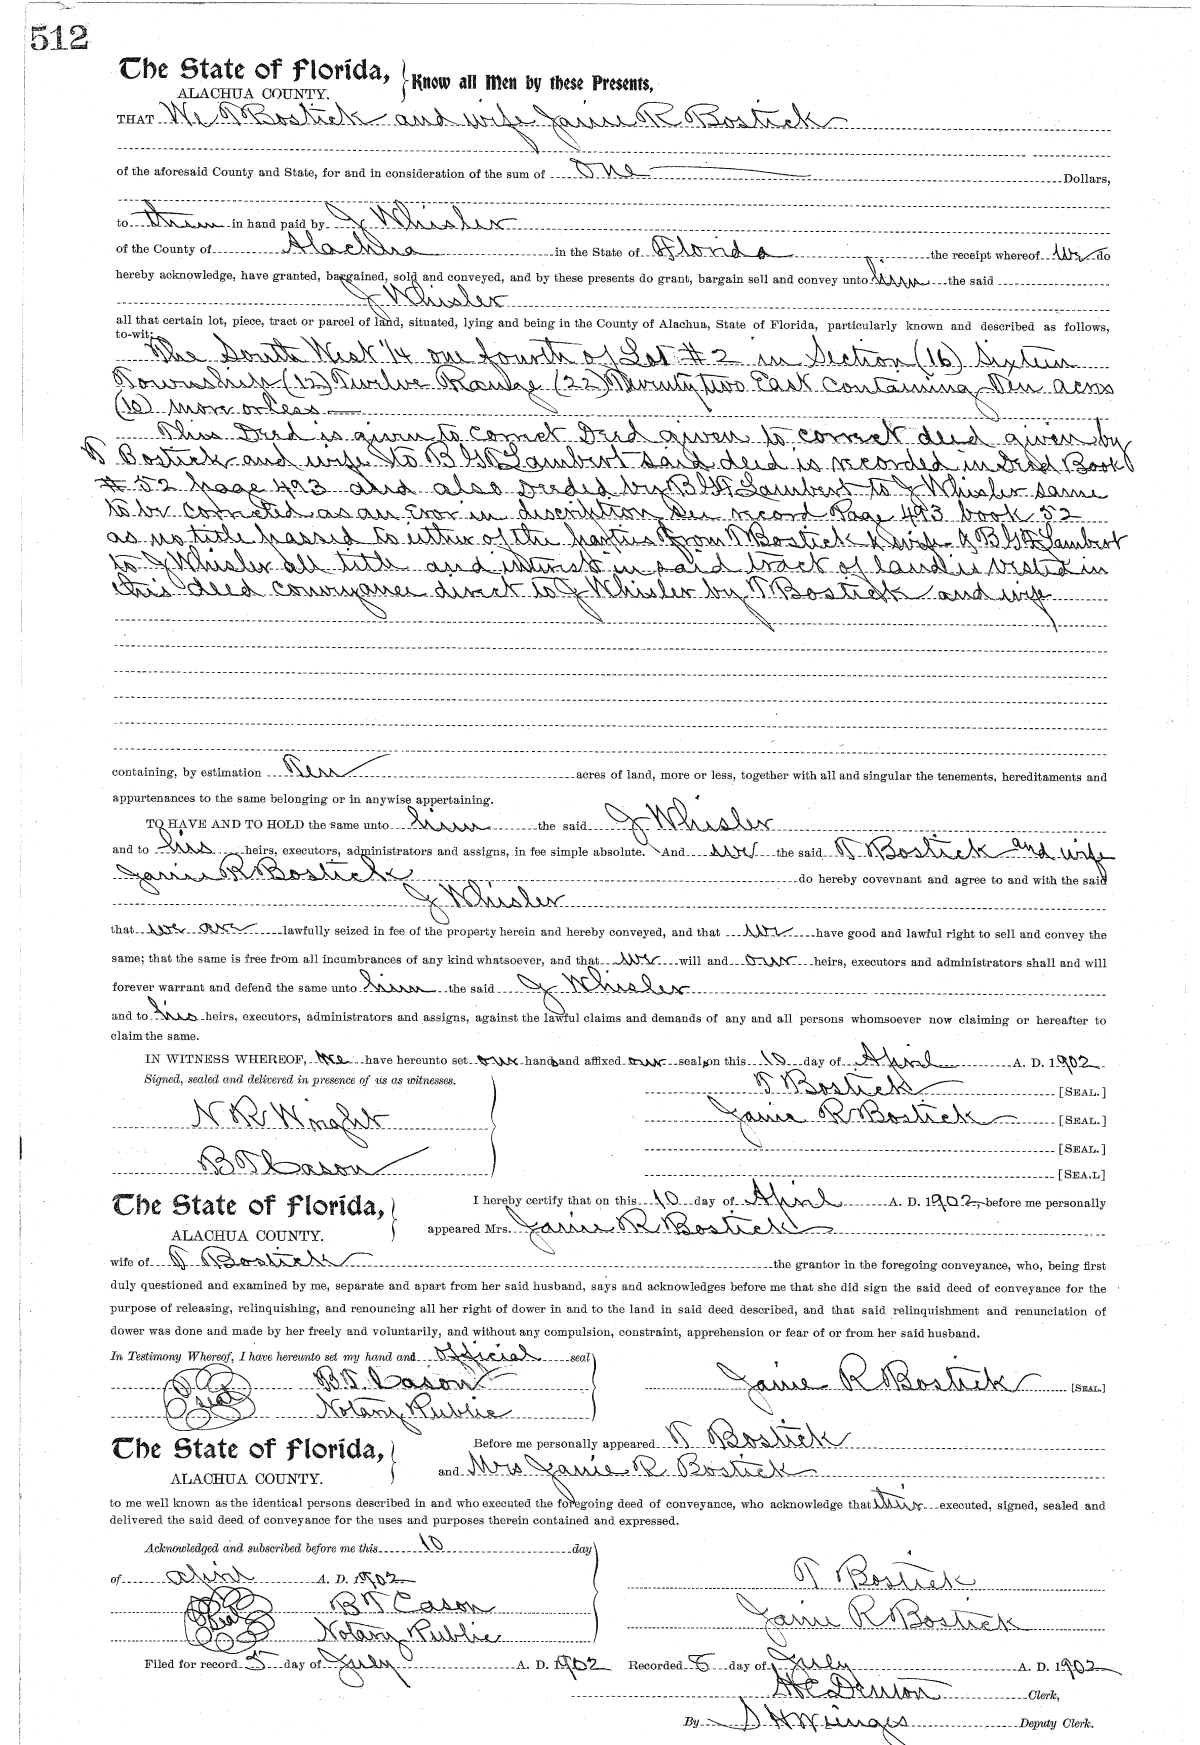 512
The State of Florida, } Know all Men by these Presents,
ALACHUA COUNTY.
THAT We T Bostick and wife Janie R Bostick
of the aforesaid County and State, for and in consideration of the sum of One Dollars,
to them in hand paid by J Whisler
of the County of Alachua in the State of Florida the receipt whereof we do
hereby acknowledge, have granted, bargained, sold and conveyed, and by these presents do grant, bargain sell and convey unto him the said
J Whisler
all that certain lot, piece, tract or parcel of land, situated, lying and being in the County of Alachua, State of Florida, particularly known and described as follows,
to-wit:
The South West 1/4 one fourth of Lot # 2 in Section (16) Sixteen
Township (12) Twelve Range (22) Twenty two East containing Ten acres
(10) more or less
This Deed is given to correct Deed given to correct deed given by
T Bostick and wife to B G Lambert said deed is recorded in Deed Book
# 52 page 493 and also Deeded by B G Lambert to J Whisler same
to be corrected as an Error in discription See record Page 493 book 52
as no title passed to either of the parties from T Bostick & wife & B G Lambert
to J Whisler all title and interest in said tract of land is vested in
this deed conveyance direct to J Whisler by T Bostick and wife
containing, by estimation Ten acres of land, more or less, together with all and singular the tenements, hereditaments and
appurtenances to the same belonging or in anywise appertaining.
TO HAVE AND TO HOLD the same unto him the said J Whisler
and to his heirs, executors, administrators and assigns, in fee simple absolute. And we the said T Bostick and wife
Janie R Bostick do hereby covevnant and agree to and with the said
J Whisler
that we are lawfully seized in fee of the property herein and hereby conveyed, and that we have good and lawful right to sell and convey the
same; that the same is free from all incumbrances of any kind whatsoever, and that we will and our heirs, executors and administrators shall and will
forever warrant and defend the same unto him the said J Whisler
and to his heirs, executors, administrators and assigns, against the lawful claims and demands of any and all persons whomsoever now claiming or hereafter to
claim the same.
IN WITNESS WHEREOF, We have hereunto set our hands and affixed our seals on this 10 day of April A. D. 1902
Signed, sealed and delivered in presence of us as witnesses.
T Bostick [SEAL.]
N R Wright
Janie R Bostick [SEAL.]
[SEAL.]
B T Cason
[SEA.L]
The State of Florida, } I hereby certify that on this 10 day of April A. D. 1902, before me personally
ALACHUA COUNTY. appeared Mrs. Janie R Bostick
wife of T Bostick the grantor in the foregoing conveyance, who, being first
duly questioned and examined by me, separate and apart from her said husband, says and acknowledges before me that she did sign the said deed of conveyance for the
purpose of releasing, relinquishing, and renouncing all her right of dower in and to the land in said deed described, and that said relinquishment and renunciation of
dower was done and made by her freely and voluntarily, and without any compulsion, constraint, apprehension or fear of or from her said husband.
In Testimony Whereof, I have hereunto set my hand and official seal
Seal B T Cason Janie R Bostick [SEAL.]
Notary Public
The State of Florida, } Before me personally appeared T Bostick
ALACHUA COUNTY. and Mrs Janie R Bostick
to me well known as the identical persons described in and who executed the foregoing deed of conveyance, who acknowledge that they executed, signed, sealed and
delivered the said deed of conveyance for the uses and purposes therein contained and expressed.
Acknowledged and subscribed before me this 10 day
of April A. D. 1902 T Bostick
Seal B T Cason Janie R Bostick
Notary Public
Filed for record 5 day of July A. D. 1902 Recorded 5 day of July A. D. 1902
H C Denton Clerk,
By S H Wienges Deputy Clerk.